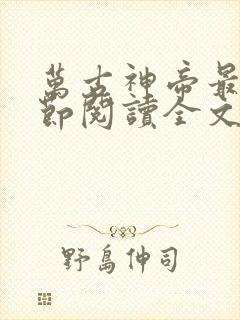 萬古神帝最
節閱讀全文
野島伸司